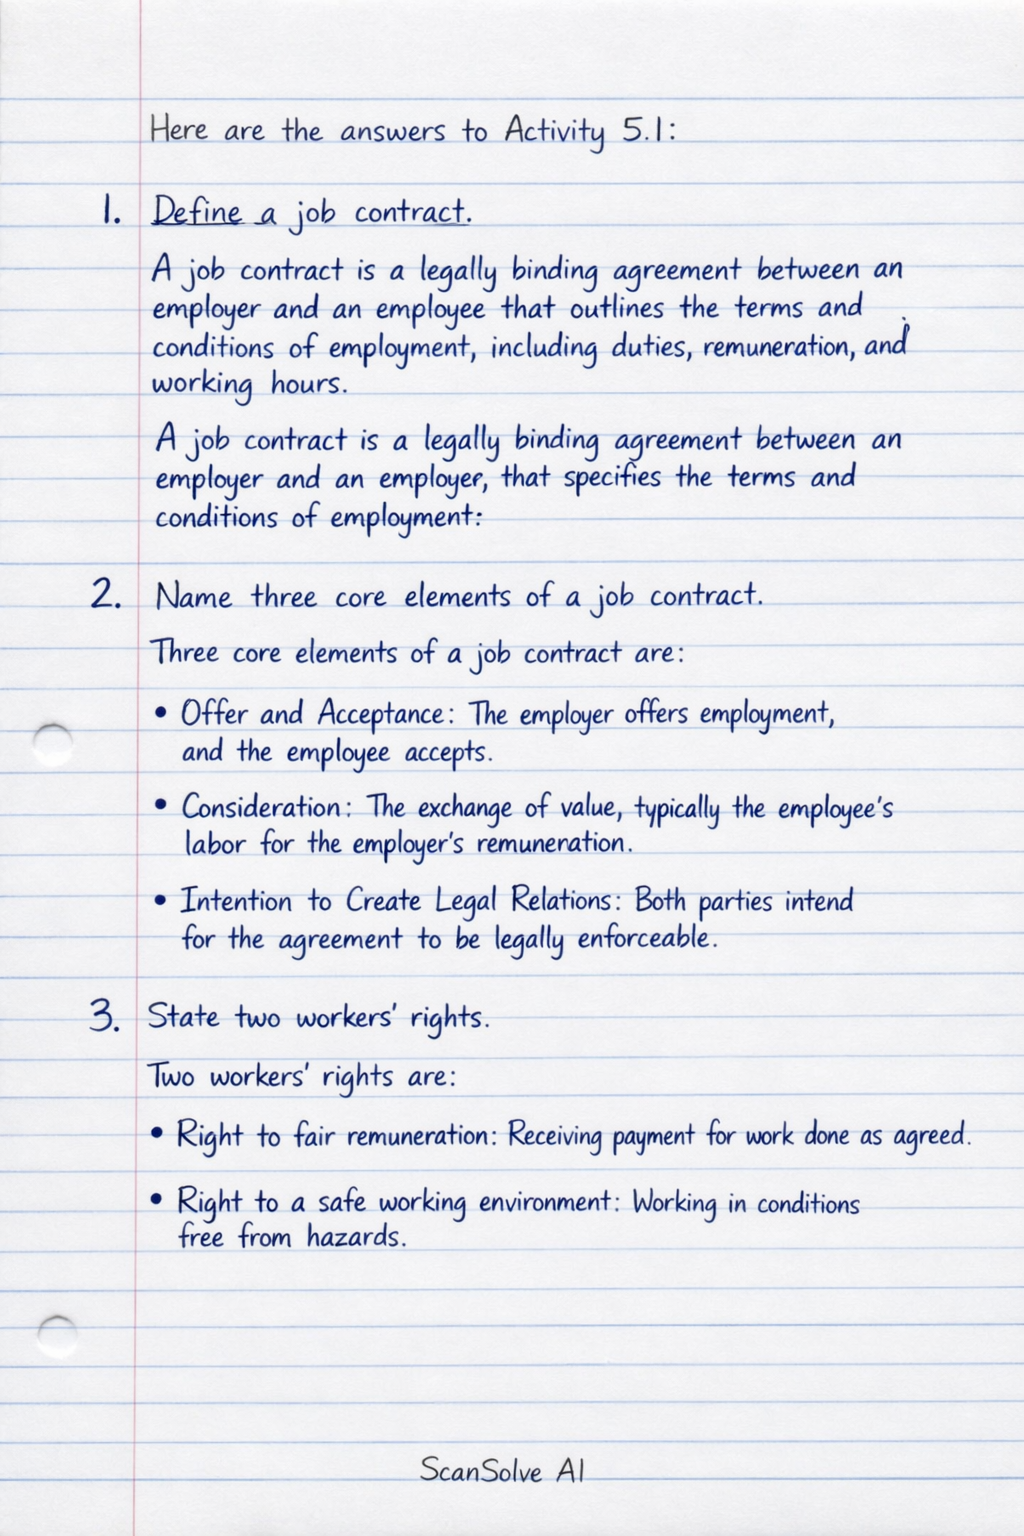 Here are the answers to Activity 5.1:
1. Define a job contract.
A job contract is a legally binding agreement between an
employer and an employee that outlines the terms and
conditions of employment, including duties, remuneration, and
working hours.
A job contract is a legally binding agreement between an
employer and an employer, that specifies the terms and
conditions of employment:
2. Name three core elements of a job contract.
Three core elements of a job contract are:
• Offer and Acceptance: The employer offers employment,
and the employee accepts.
• Consideration: The exchange of value, typically the employee's
labor for the employer's remuneration.
• Intention to Create Legal Relations: Both parties intend
for the agreement to be legally enforceable.
3. State two workers' rights.
Two workers' rights are:
• Right to fair remuneration: Receiving payment for work done as agreed.
• Right to a safe working environment: Working in conditions
free from hazards.
ScanSolve AI